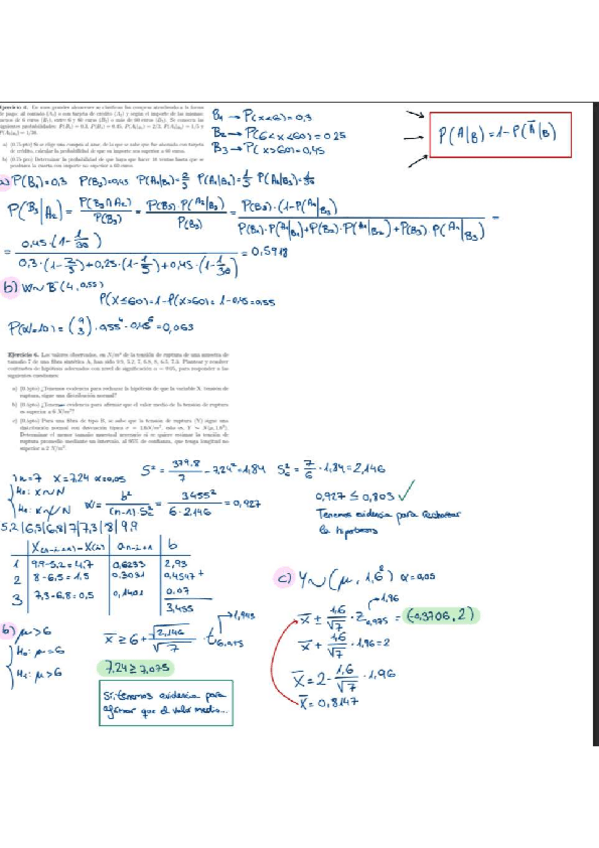 Ejercicio 4. En unos grandes almacenes se clasifican las compras atendiendo a la forma
de pago: al contado (A₁) o con tarjeta de crédito (A₂) y según el importe de las mismas:
menos de 6 euros (B₁), entre 6 y 60 euros (B₂) o más de 60 euros (B₃). Se conocen las
siguientes probabilidades: P(B₁) = 0.3, P(B₃) = 0.45, P(A₁|B₁) = 2/3, P(A₁|B₂) = 1/5 y
P(A₁|B₃) = 1/30.
a) (0.75 pto) Se elige una compra al azar, de la que se sabe que fue abonada con tarjeta
de crédito, calcular la probabilidad de que su importe sea superior a 60 euros.
b) (0.75 pto) Determinar la probabilidad de que haya que hacer 10 ventas hasta que se
produzca la cuarta con importe no superior a 60 euros.
B₁ → P(x<6)=0,3
B₂ → P(6<x<60)=0,25
B₃ → P(x>60)=0,45
P(A|B)=1-P(Ā|B)
a) P(B₁)=0,3 P(B₃)=0,45 P(A₁|B₁)=2/3 P(A₁|B₂)=1/5 P(A₁|B₃)=1/30
P(B₃|A₂) = P(B₃∩A₂)/P(B₃) = P(B₃)·P(A₂|B₃)/P(B₃) = P(B₃)·(1-P(A₁|B₃)) / P(B₁)·P(A₁|B₁)+P(B₂)·P(A₁|B₂)+P(B₃)·P(A₁|B₃) =
= 0,45·(1-1/30) / 0,3·(1-2/3)+0,25·(1-1/5)+0,45·(1-1/30) = 0,5918
b) W~B⁻(4,0,55)
P(X≤60)=1-P(x>60)=1-0,45=0,55
P(W=10)=(9 3)·0,55⁴·0,45⁶=0,063
Ejercicio 6. Los valores observados, en N/m² de la tensión de ruptura de una muestra de
tamaño 7 de una fibra sintética A, han sido 9.9, 5.2, 7, 6.8, 8, 6.5, 7.3. Plantear y resolver
contrastes de hipótesis adecuados con nivel de significación α = 0.05, para responder a las
siguientes cuestiones:
a) ¿Tenemos evidencia para rechazar la hipótesis de que la variable X, tensión de
ruptura, sigue una distribución normal?
b) ¿Tenemos evidencia para afirmar que el valor medio de la tensión de ruptura
es superior a 6 N/m²?
c) Para una fibra de tipo B, se sabe que la tensión de ruptura (Y) sigue una
distribución normal con desviación típica
Determinar el menor tamaño muestral necesario si se quiere estimar la tensión de
ruptura promedio mediante un intervalo, al 95% de confianza, que tenga longitud no
superior a 2 N/m².
n=7 x̄=7,24 α=0,05
S²=379,8/7-7,24²=1,84 S²c=7/6·1,84=2,146
H₀: X~N
H₁: X≁N
W=b²/(n-1)·S²c=3,455²/6·2,146=0,927
0,927 ≤ 0,803 ✓
Tenemos evidencia para rechazar
la hipótesis
5,2|6,5|6,8|7|7,3|8|9,9
X(n-i+1)-X(i) an-i+1 b
1 9,9-5,2=4,7 0,6233 2,93
2 8-6,5=1,5 0,3031 0,4547 +
3 7,3-6,8=0,5 0,1401 0,07
3,455
b) μ>6
H₀: μ=6
H₁: μ>6
x̄ ≥ 6+√2,146/√7·t6,0,975 → 1,943
7,24 ≥ 7,075
Sí, tenemos evidencia para
afirmar que el valor medio...
c) Y~(μ,1,6²) α=0,05
→ 1,96
x̄ ± 1,6/√7·z0,975 = (-0,3706, 2)
x̄ + 1,6/√7·1,96=2
x̄=2-1,6/√7·1,96
x̄=0,8147